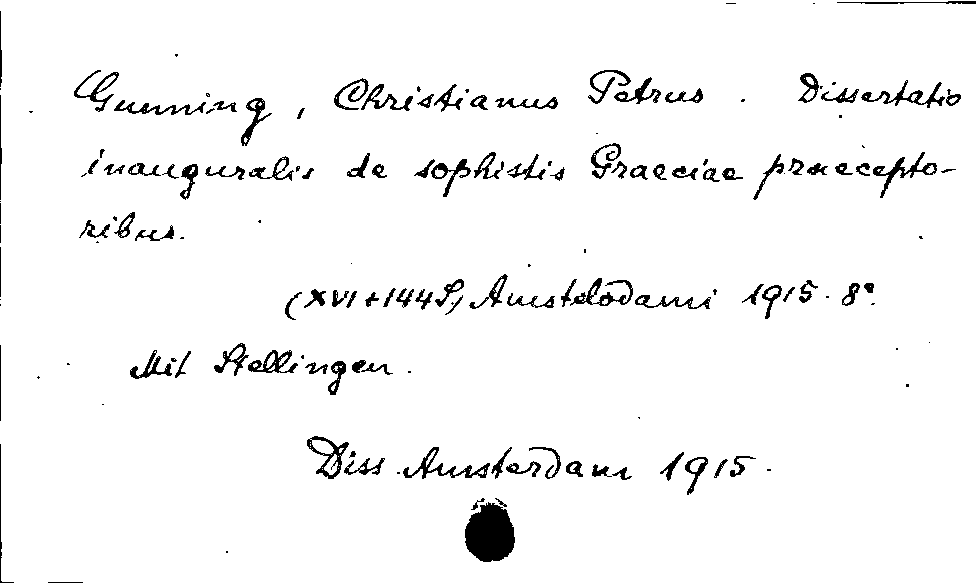 Gunning, Christianus Petrus. Dissertatio
inauguralis de sophistis Graeciae praecepto-
ribus.
(XVI+144S) Amstelodami 1915. 8°.
Mit Stellingen.
Diss. Amsterdam 1915.